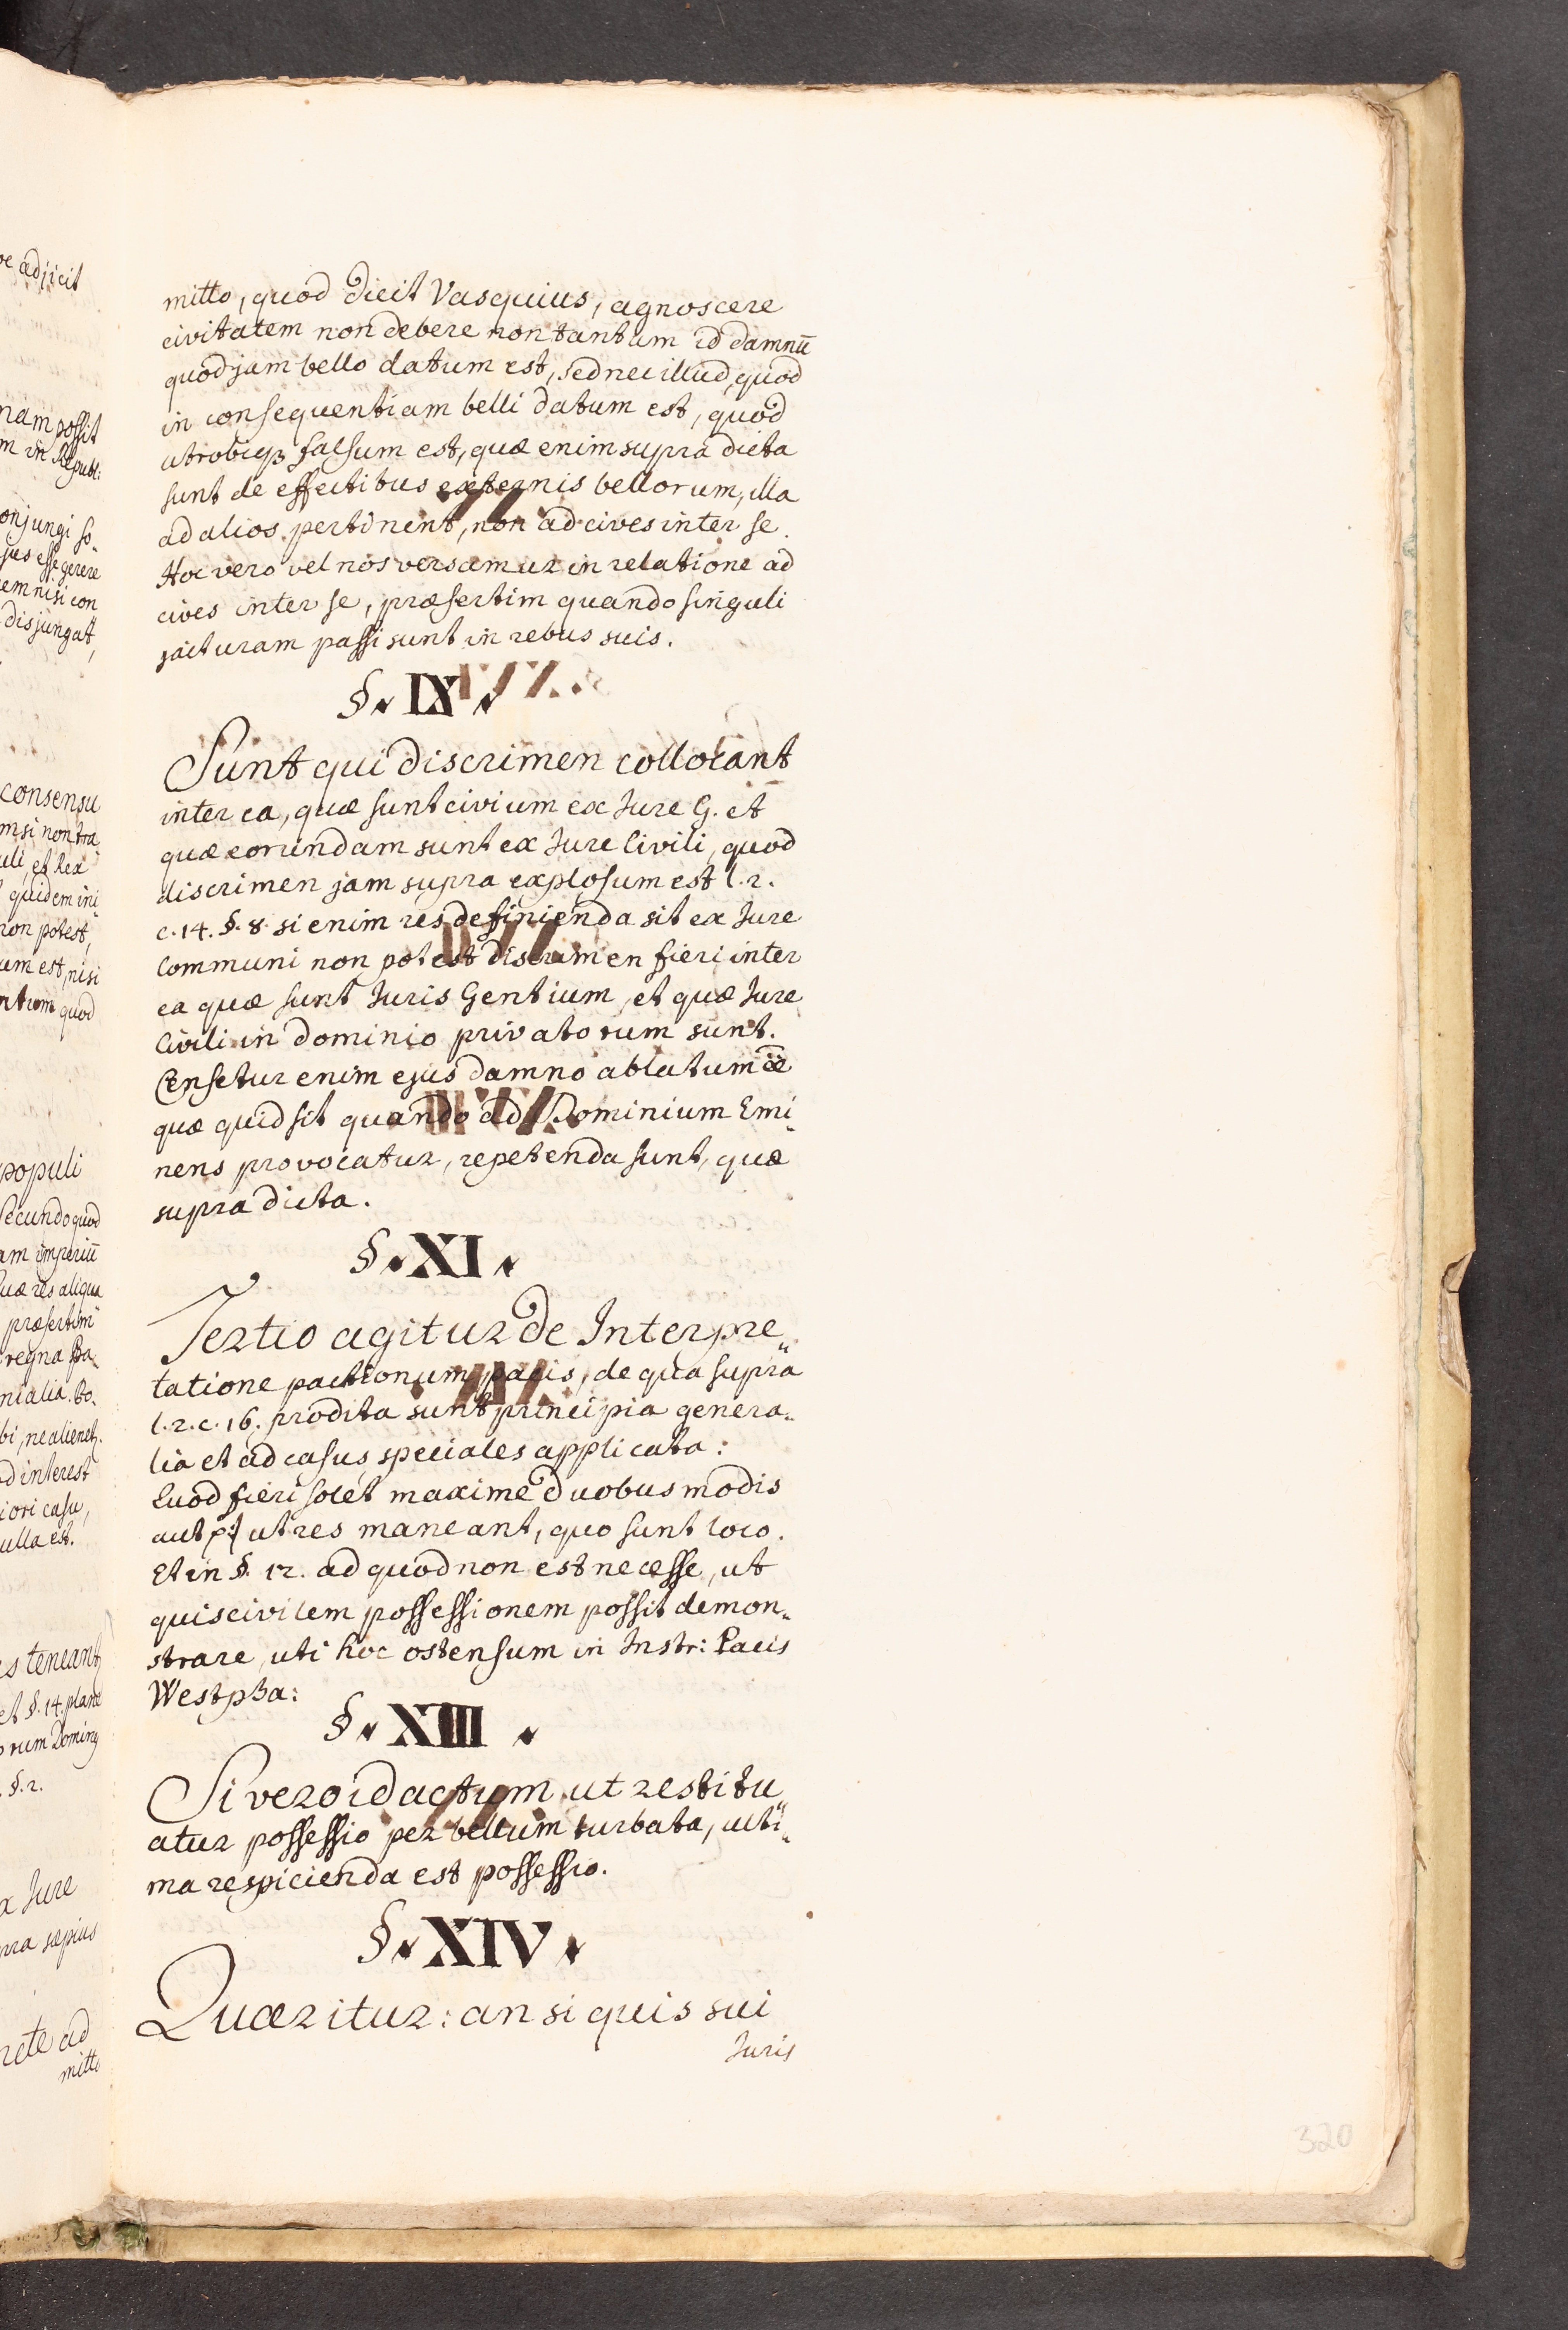 mitto, quod dicit Vasquius, agnoscere
civitatem non debere non tantum id damnū
quod jam bello datum est, sed nec illud, quod
in consequentiam belli datum est, quod
utrobiqȝ falsum est, quæ enim supra dicta
sunt de effectibus externis bellorum, illa
ad alios pertinent, non ad cives inter se.
Hoc vero vel nos versamur in relatione ad
cives inter se, præsertim quando singuli
jacturam passi sunt in rebus suis.
§. IX.
Sunt qui discrimen collocant
inter ea, quæ sunt civium ex Jure G. et
quæ eorundam sunt ex Jure Civili, quod
discrimen jam supra explosum est l. 2.
c. 14. §. 8. si enim res definienda sit ex Jure
Communi non potest discrimen fieri inter
ea quæ sunt Juris Gentium, et quæ Jure
Civili in dominio privatorum sunt.
Censetur enim ejus damno ablatum
quæ quid sit quando ad Dominium Emi-
nens provocatur, repetenda sunt, quæ
supra dicta.
§. XI.
Tertio agitur de Interpre-
tatione pactionum pacis, de qua supra
l. 2. c. 16. prodita sunt principia genera-
lia et ad casus speciales applicata:
Quod fieri solet maxime duobus modis
aut ut res maneant, quo sunt loco.
Et in §. 12. ad quod non est necesse, ut
quis civilem possessionem possit demon-
strare, uti hoc ostensum in Instr: Pacis
Westpha:
§. XIII.
Si vero id actum ut restitu-
atur possessio per bellum turbata, ulti-
ma respicienda est possessio.
§. XIV.
Quæritur: an si quis sui
Juris
320
æ adjicit
nam possit
m in Republ:
onjungi so-
sus esse gerere
em nisi con
disjungat,
consensu
msi non tra
uli, et lex
quidem ini-
non potest,
um est, nisi
ntum quod
populi
Secundo quod
am imperiū
quæ res aliqua
præsertim
regna Pa-
nialia. Bo-
bi, ne alienet.
d interest
iori casu,
ulla est.
s teneant
et §. 14. plane
orum
§. 2.
x Jure
pra sæpius
rete ad
mitto